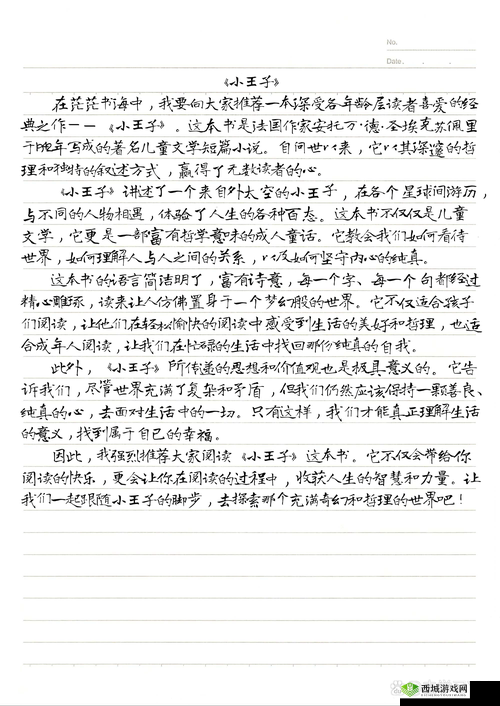 No.
Date.
《小王子》
在茫茫书海中，我要向大家推荐一本深受各年龄层读者喜爱的经
典之作——《小王子》。这本书是法国作家安托万·德·圣埃克苏佩里
于1942年写成的著名儿童文学短篇小说。自问世以来，它以其深邃的哲
理和独特的叙述方式，赢得了无数读者的心。
《小王子》讲述了一个来自外太空的小王子，在各个星球间游历，
与不同的人物相遇，体验了人生的各种百态。这本书不仅仅是儿童
文学，它更是一部富有哲学意味的成人童话。它教会我们如何看待
世界，如何理解人与人之间的关系，以及如何坚守内心的纯真。
这本书的语言简洁明了，富有诗意，每一个字、每一个句都经过
精心雕琢，读来让人仿佛置身于一个梦幻般的世界。它不仅适合孩子
们阅读，让他们在轻松愉快的阅读中感受到生活的美好和哲理，也适
合成年人阅读，让我们在忙碌的生活中找回那份纯真的自我。
此外，《小王子》所传递的思想和价值观也是极具意义的。它告
诉我们，尽管世界充满了复杂和矛盾，但我们仍然应该保持一颗善良、
纯真的心，去面对生活中的一切。只有这样，我们才能真正理解生活
的意义，找到属于自己的幸福。
因此，我强烈推荐大家阅读《小王子》这本书。它不仅会带给你
阅读的快乐，更会让你在阅读的过程中，收获人生的智慧和力量。让
我们一起跟随小王子的脚步，去探索那个充满奇幻和哲理的世界吧！
西城游戏网